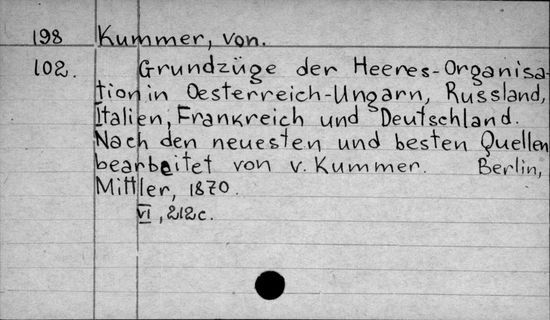 198 Kummer, von.
102. Grundzüge der Heeres-Organisa-
tion in Oesterreich-Ungarn, Russland,
Italien, Frankreich und Deutschland.
Nach den neuesten und besten Quellen
bearbeitet von v. Kummer. Berlin,
Mittler, 1870.
VI, 212c.